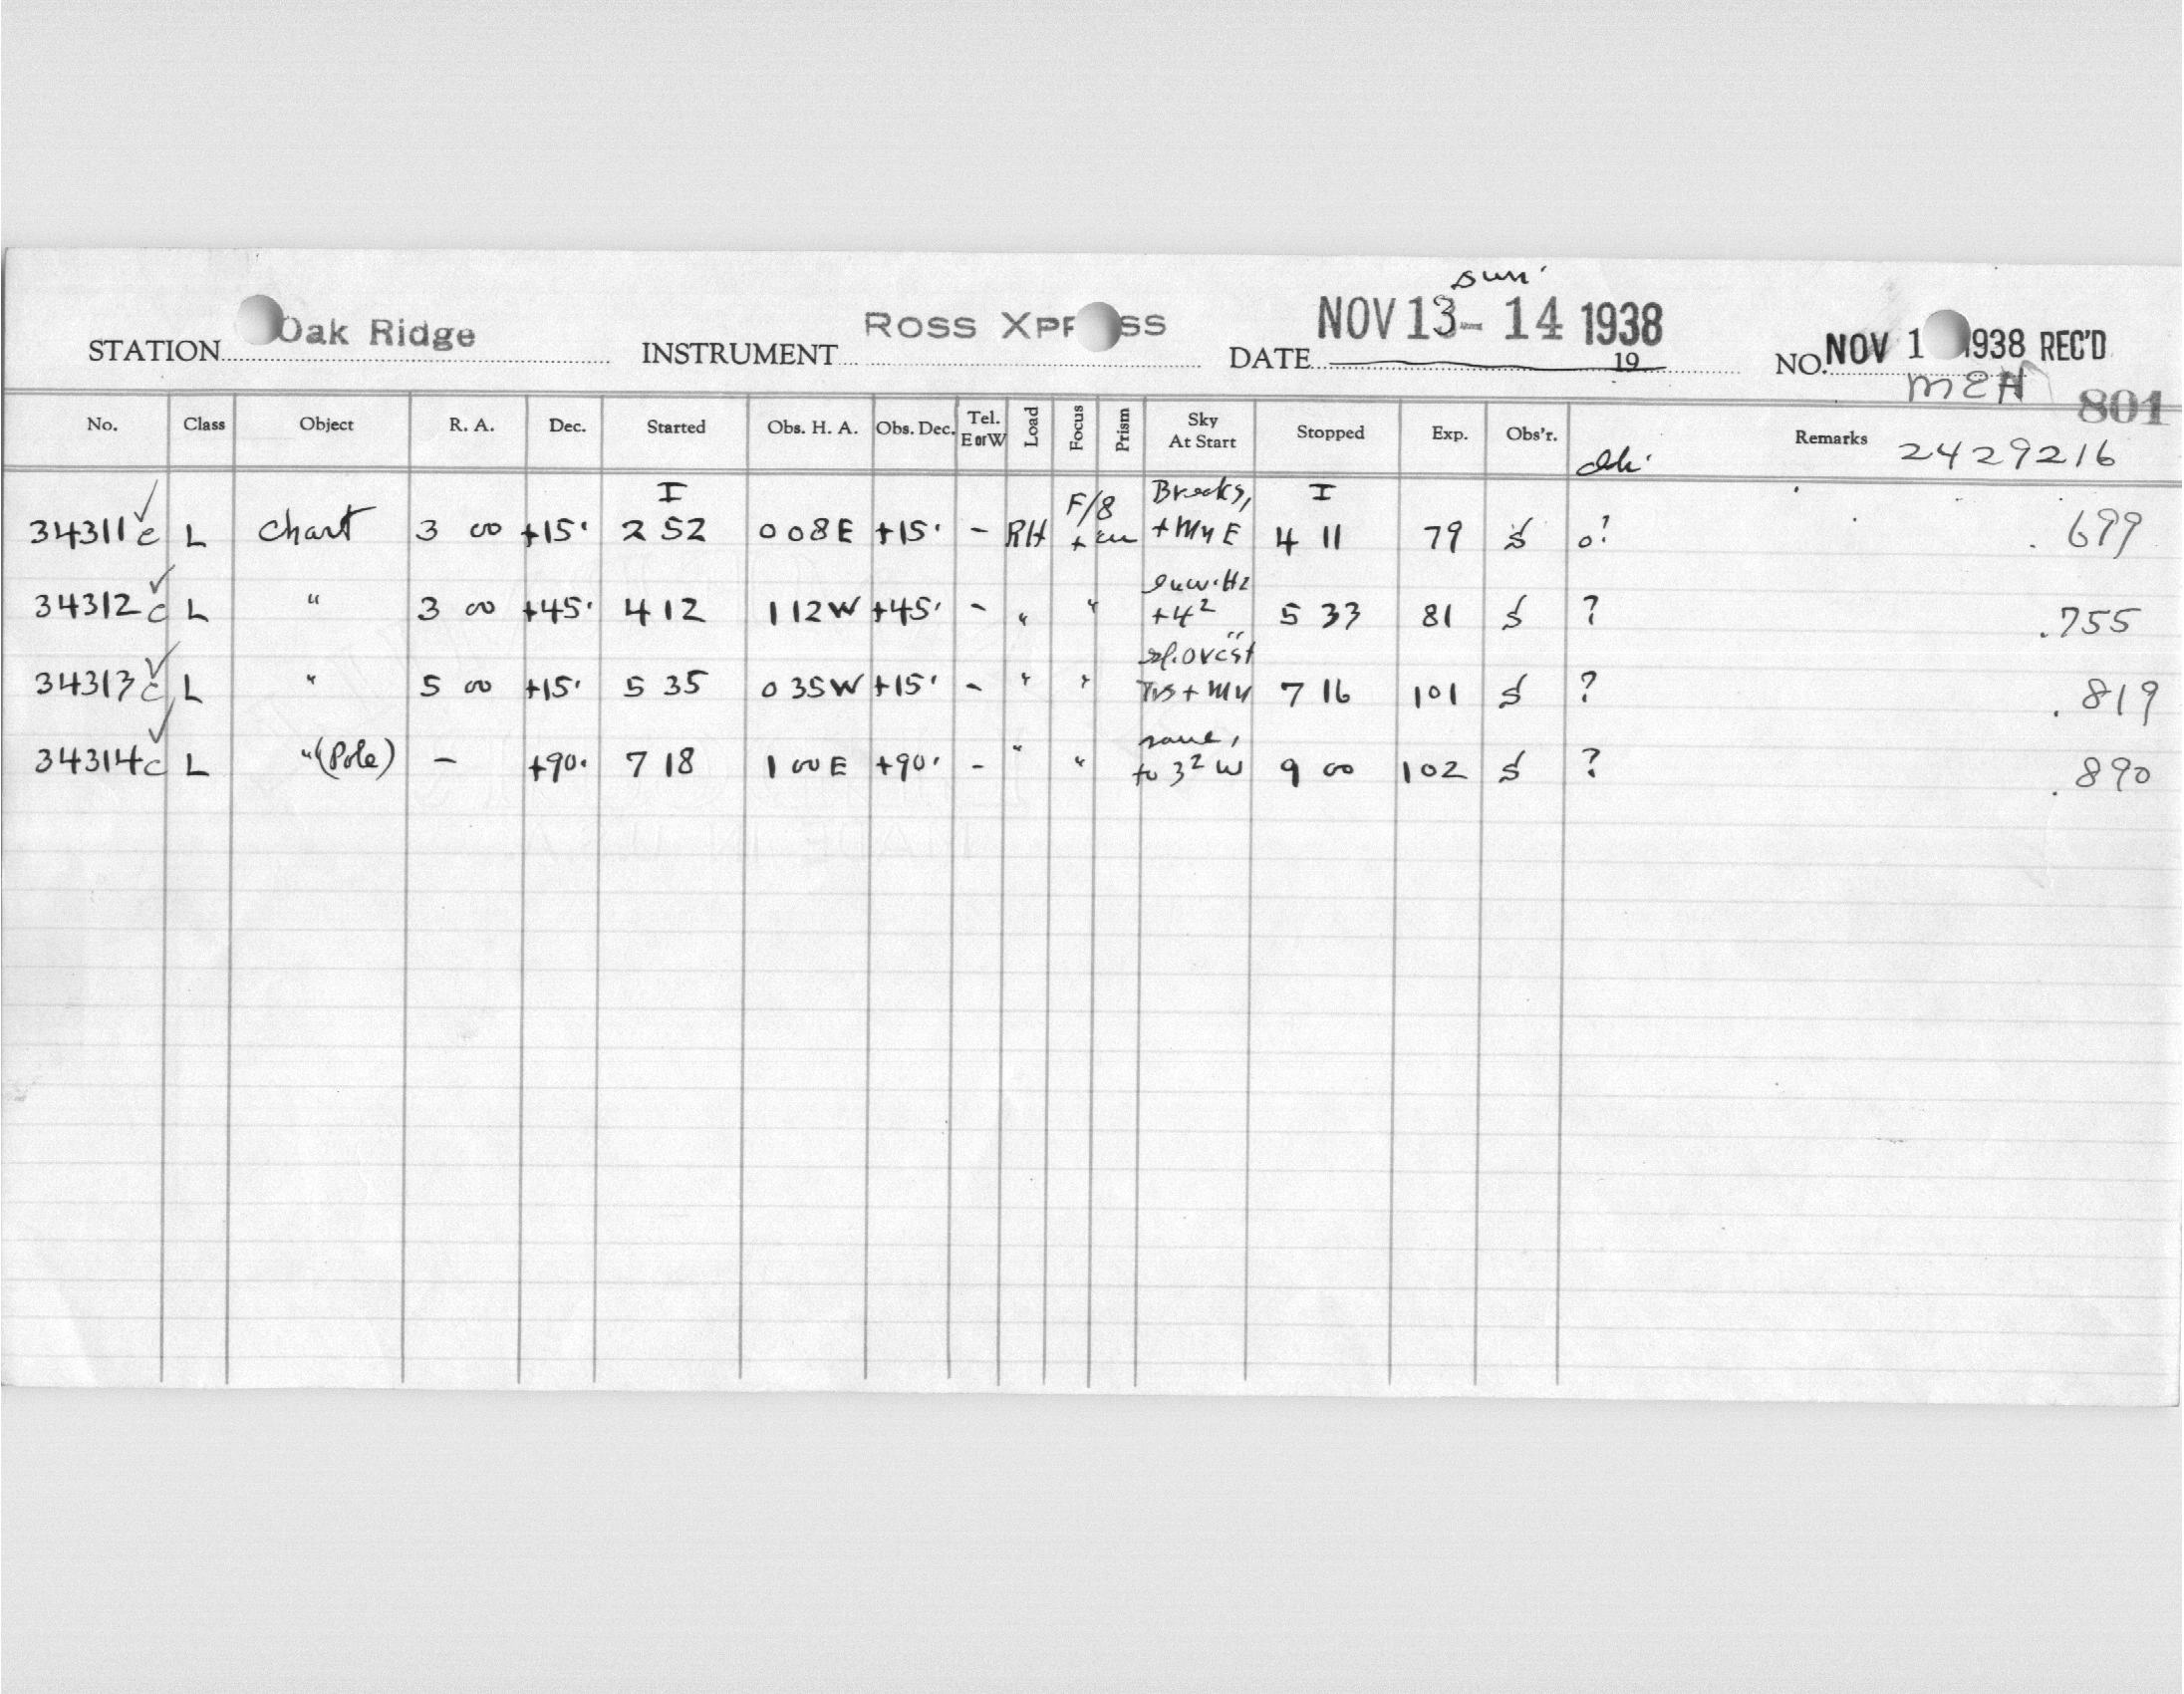 sun.
STATION Oak Ridge INSTRUMENT ROSS XPR SS DATE NOV 13 - 14 1938 19 NO. NOV 1 1938 REC'D
MEH 801
No. Class Object R. A. Dec. Started Obs. H. A. Obs. Dec. Tel. E or W Load Focus Prism Sky At Start Stopped Exp. Obs'r. Remarks 2429216
34311 c L Chart 3 00 +15° I 2 52 0 08 E +15° - RH F/8 Breaks, + Mn E I 4 11 79 S o? .699
34312 c L " 3 00 +45° 4 12 1 12 W +45° - " " +4² 5 33 81 S ? .755
34313 c L " 5 00 +15° 5 35 0 35 W +15° - " " ovcst + Mn 7 16 101 S ? .819
34314 c L " (Pole) - +90° 7 18 1 00 E +90° - " " same, to 3² W 9 00 102 S ? .890